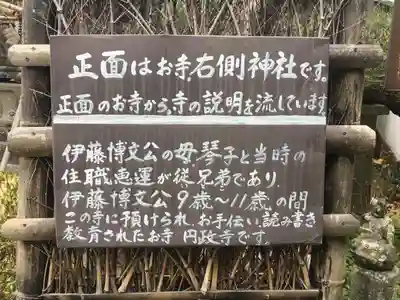 正面はお寺、右側神社です。
正面のお寺から、寺の説明を流しています。
伊藤博文公の母、琴子と当時の
住職恵運が従兄弟であり、
伊藤博文公9歳〜11歳の間
この寺に預けられ、お手伝い、読み書き
教育されたお寺 円政寺です。